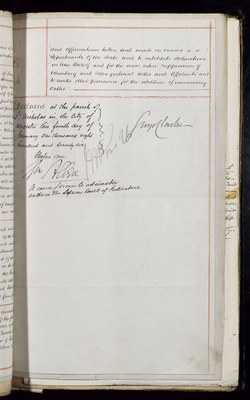 and affirmations taken and made in various
departments of the State and to substitute declarations
in lieu thereof and for the more entire suppression of
voluntary and extra judicial oaths and affidavits and
to make other provisions for the abolition of unnecessary
oaths
Declared at the parish of
St Nicholas in the City of
this fourth day of
one thousand eight
hundred and seventy
Before me
A Commissioner to administer
oaths in the Supreme Court of Judicature